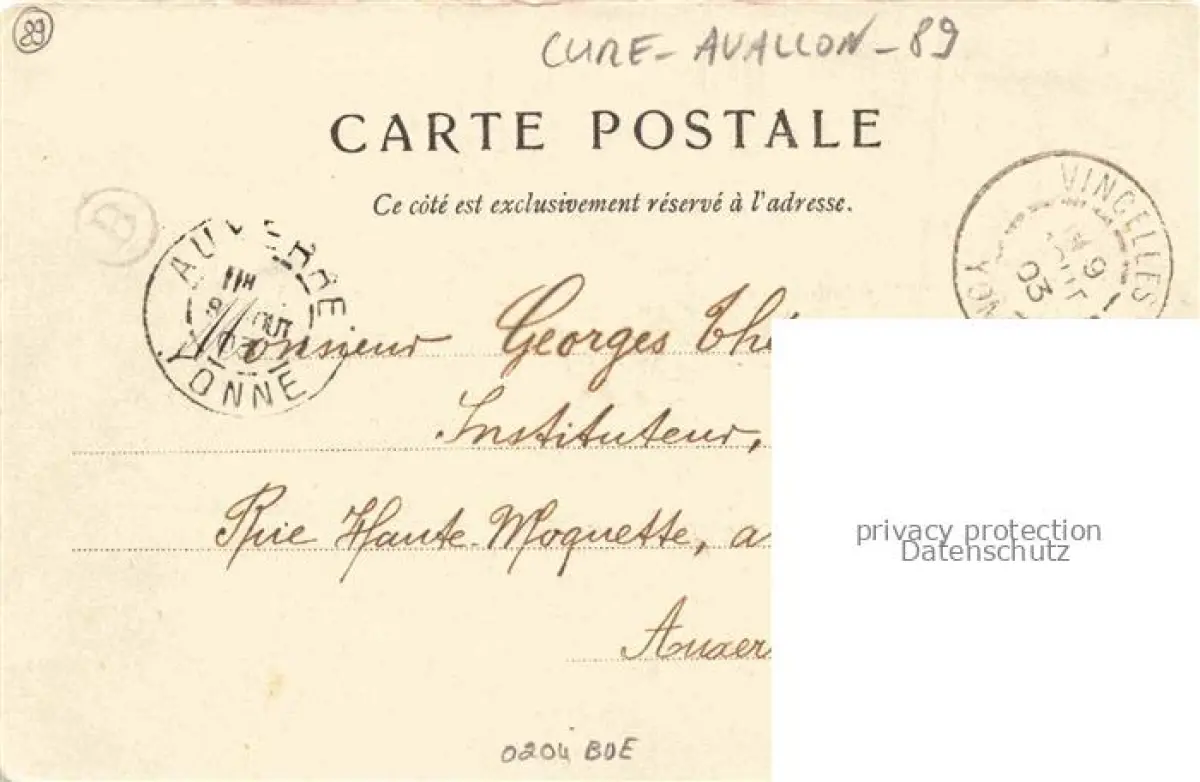 89
CURE - AVALLON - 89
CARTE POSTALE
Ce côté est exclusivement réservé à l'adresse.
B
AUXERRE
YONNE
VINCELLES
9
03
Monsieur Georges Thé
Instituteur,
Rue Haute-Moquette, a
Auxer
privacy protection
Datenschutz
0204 BDE